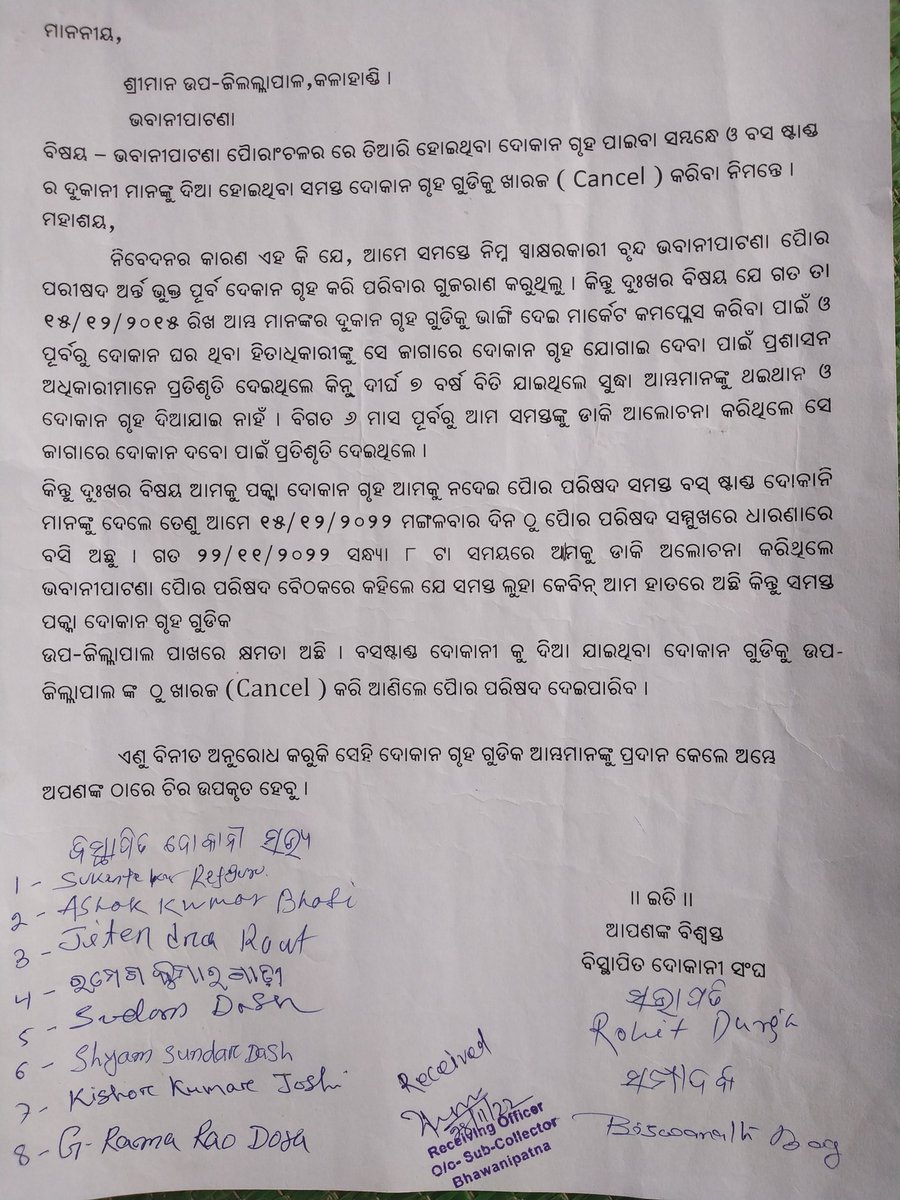 ମାନନୀୟ,
ଶ୍ରୀମାନ ଉପ-ଜିଲଲ୍ଲାପାଳ,କଳାହାଣ୍ଡି ।
ଭବାନୀପାଟଣା
ବିଷୟ – ଭବାନୀପାଟଣା ପୈାରାଂଚଳର ରେ ତିଆରି ହୋଇଥିବା ଦୋକାନ ଗୃହ ପାଇବା ସମ୍ବନ୍ଧେ ଓ ବସ ଷ୍ଟାଣ୍ଡ
ର ଦୁକାନୀ ମାନଙ୍କୁ ଦିଆ ହୋଇଥିବା ସମସ୍ତ ଦୋକାନ ଗୃହ ଗୁଡିକୁ ଖାରଜ ( Cancel ) କରିବା ନିମନ୍ତେ ।
ମହାଶୟ,
ନିବେଦନର କାରଣ ଏହ କି ଯେ, ଆମେ ସମସ୍ତେ ନିମ୍ନ ସ୍ଵାକ୍ଷରକାରୀ ବୃନ୍ଦ ଭବାନୀପାଟଣା ପୈାର
ପରୀଷଦ ଅର୍ନ୍ତ ଭୁକ୍ତ ପୂର୍ବ ଦେକାନ ଗୃହ କରି ପରିବାର ଗୁଜରାଣ କରୁଥିଲୁ । କିନ୍ତୁ ଦୁଃଖର ବିଷୟ ଯେ ଗତ ତା
୧୫/୧୨/୨୦୧୫ ରିଖ ଆମ୍ଭ ମାନଙ୍କର ଦୁକାନ ଗୃହ ଗୁଡିକୁ ଭାଙ୍ଗି ଦେଇ ମାର୍କେଟ କମପ୍ଲେସ କରିବା ପାଇଁ ଓ
ପୂର୍ବରୁ ଦୋକାନ ଘର ଥିବା ହିତାଧିକାରୀଙ୍କୁ ସେ ଜାଗାରେ ଦୋକାନ ଗୃହ ଯୋଗାଇ ଦେବା ପାଇଁ ପ୍ରଶାସନ
ଅଧିକାରୀମାନେ ପ୍ରତିଶୃତି ଦେଇଥିଲେ କିନ୍ତୁ ଦୀର୍ଘ ୭ ବର୍ଷ ବିତି ଯାଇଥିଲେ ସୁଦ୍ଧା ଆମ୍ଭମାନଙ୍କୁ ଥଇଥାନ ଓ
ଦୋକାନ ଗୃହ ଦିଆଯାଇ ନାହିଁ । ବିଗତ ୬ ମାସ ପୂର୍ବରୁ ଆମ ସମସ୍ତଙ୍କୁ ଡାକି ଆଲୋଚନା କରିଥିଲେ ସେ
ଜାଗାରେ ଦୋକାନ ଦବୋ ପାଇଁ ପ୍ରତିଶୃତି ଦେଇଥିଲେ ।
କିନ୍ତୁ ଦୁଃଖର ବିଷୟ ଆମକୁ ପକ୍କା ଦୋକାନ ଗୃହ ଆମକୁ ନଦେଇ ପୈାର ପରିଷଦ ସମସ୍ତ ବସ୍ ଷ୍ଟାଣ୍ଡ ଦୋକାନି
ମାନଙ୍କୁ ଦେଲେ ତେଣୁ ଆମେ ୧୫/୧୨/୨୦୨୨ ମଙ୍ଗଳବାର ଦିନ ଠୁ ପୈାର ପରିଷଦ ସମ୍ମୁଖରେ ଧାରଣାରେ
ବସି ଅଛୁ । ଗତ ୨୨/୧୧/୨୦୨୨ ସନ୍ଧ୍ୟା ୮ ଟା ସମୟରେ ଆମକୁ ଡାକି ଅଲୋଚନା କରିଥିଲେ
ଭବାନୀପାଟଣା ପୈାର ପରିଷଦ ବୈଠକରେ କହିଲେ ଯେ ସମସ୍ତ ଲୁହା କେବିନ୍ ଆମ ହାତରେ ଅଛି କିନ୍ତୁ ସମସ୍ତ
ପକ୍କା ଦୋକାନ ଗୃହ ଗୁଡିକ
ଉପ-ଜିଲ୍ଲାପାଲ ପାଖରେ କ୍ଷମତା ଅଛି । ବସଷ୍ଟାଣ୍ଡ ଦୋକାନୀ କୁ ଦିଆ ଯାଇଥିବା ଦୋକାନ ଗୁଡିକୁ ଉପ-
ଜିଲ୍ଲାପାଲ ଙ୍କ ଠୁ ଖାରଜ (Cancel ) କରି ଆଣିଲେ ପୈାର ପରିଷଦ ଦେଇପାରିବ ।
ଏଣୁ ବିନୀତ ଅନୁରୋଧ କରୁକି ସେହି ଦୋକାନ ଗୃହ ଗୁଡିକ ଆମ୍ଭମାନଙ୍କୁ ପ୍ରଦାନ କେଲେ ଅମ୍ଭେ
ଅପଣଙ୍କ ଠାରେ ଚିର ଉପକୃତ ହେବୁ ।
ବିସ୍ଥାପିତ ଦୋକାନୀ ସଭ୍ୟ
1 -
2 - Ashok Kumar Bhoti
3 - Jitendra Rout
4 - ରମେଶ କୁମାର
5 - Sudam Dash
6 - Shyam Sundar Dash
7 - Kishore Kumar Joshi
8 - G. Rama Rao Dora
।। ଇତି ।।
ଆପଣଙ୍କ ବିଶ୍ୱସ୍ତ
ବିସ୍ଥାପିତ ଦୋକାନୀ ସଂଘ
ସଭାପତି
Rohit Durga
ସମ୍ପାଦକ
Biswanath Bag
Received
Receiving Officer
O/c- Sub-Collector
Bhawanipatna